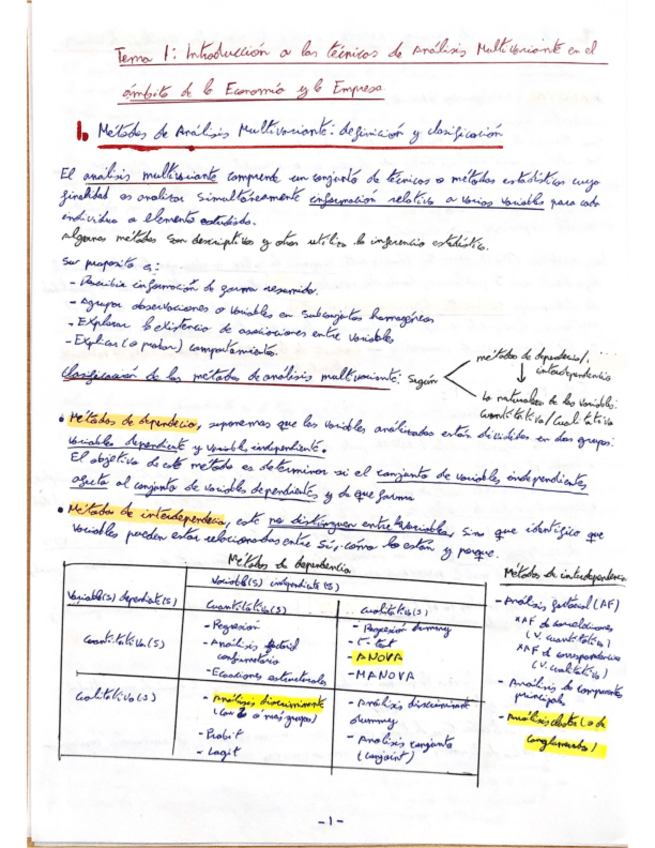 Tema 1: Introducción a las técnicas de Análisis Multivariante en el
ámbito de la Economía y la Empresa.
1. Métodos de Análisis Multivariante: definición y clasificación
El análisis multivariante comprende un conjunto de técnicas o métodos estadísticos cuya
finalidad es analizar simultáneamente información relativa a varias variables para cada
individuo o elemento estudiado.
Algunos métodos son descriptivos y otros utilizan la inferencia estadística.
Su propósito es:
- Describir información de forma resumida.
- Agrupar observaciones o variables en subconjuntos homogéneos
- Explorar la existencia de asociaciones entre variables
- Explicar (o probar) comportamientos.
Clasificación de los métodos de análisis multivariante: según
métodos de dependencia/
interdependencia
La naturaleza de las variables:
cuantitativa/cualitativa
• Métodos de dependencia, suponemos que las variables analizadas están divididas en dos grupos:
variables dependiente y variable independiente.
El objetivo de este método es determinar si el conjunto de variables independientes,
afecta al conjunto de variables dependientes y de que forma
• Métodos de interdependencia, este no distinguen entre variables, sino que identifica que
variables pueden estar relacionadas entre sí, cómo lo están y porque.
Métodos de dependencia
Variable(s) independiente(s)
Variable(s) dependiente(s)
Cuantitativa(s)
cualitativa(s)
Cuantitativa(s)
- Regresión
- Análisis factorial
confirmatorio
- Ecuaciones estructurales
- Regresión dummy
- T-test
- ANOVA
- MANOVA
Cualitativa(s)
- Análisis discriminante
(con 2 o más grupos)
- Probit
- Logit
- Análisis discriminante
dummy
- Analisis conjunto
(conjoint)
Métodos de interdependencia
- Análisis factorial (AF)
*AF de correlaciones
(V. cuantitativa)
*AF de correspondencias
(V. cualitativa)
- Análisis de componentes
principales
- Análisis cluster (o de
conglomerados)
-1-